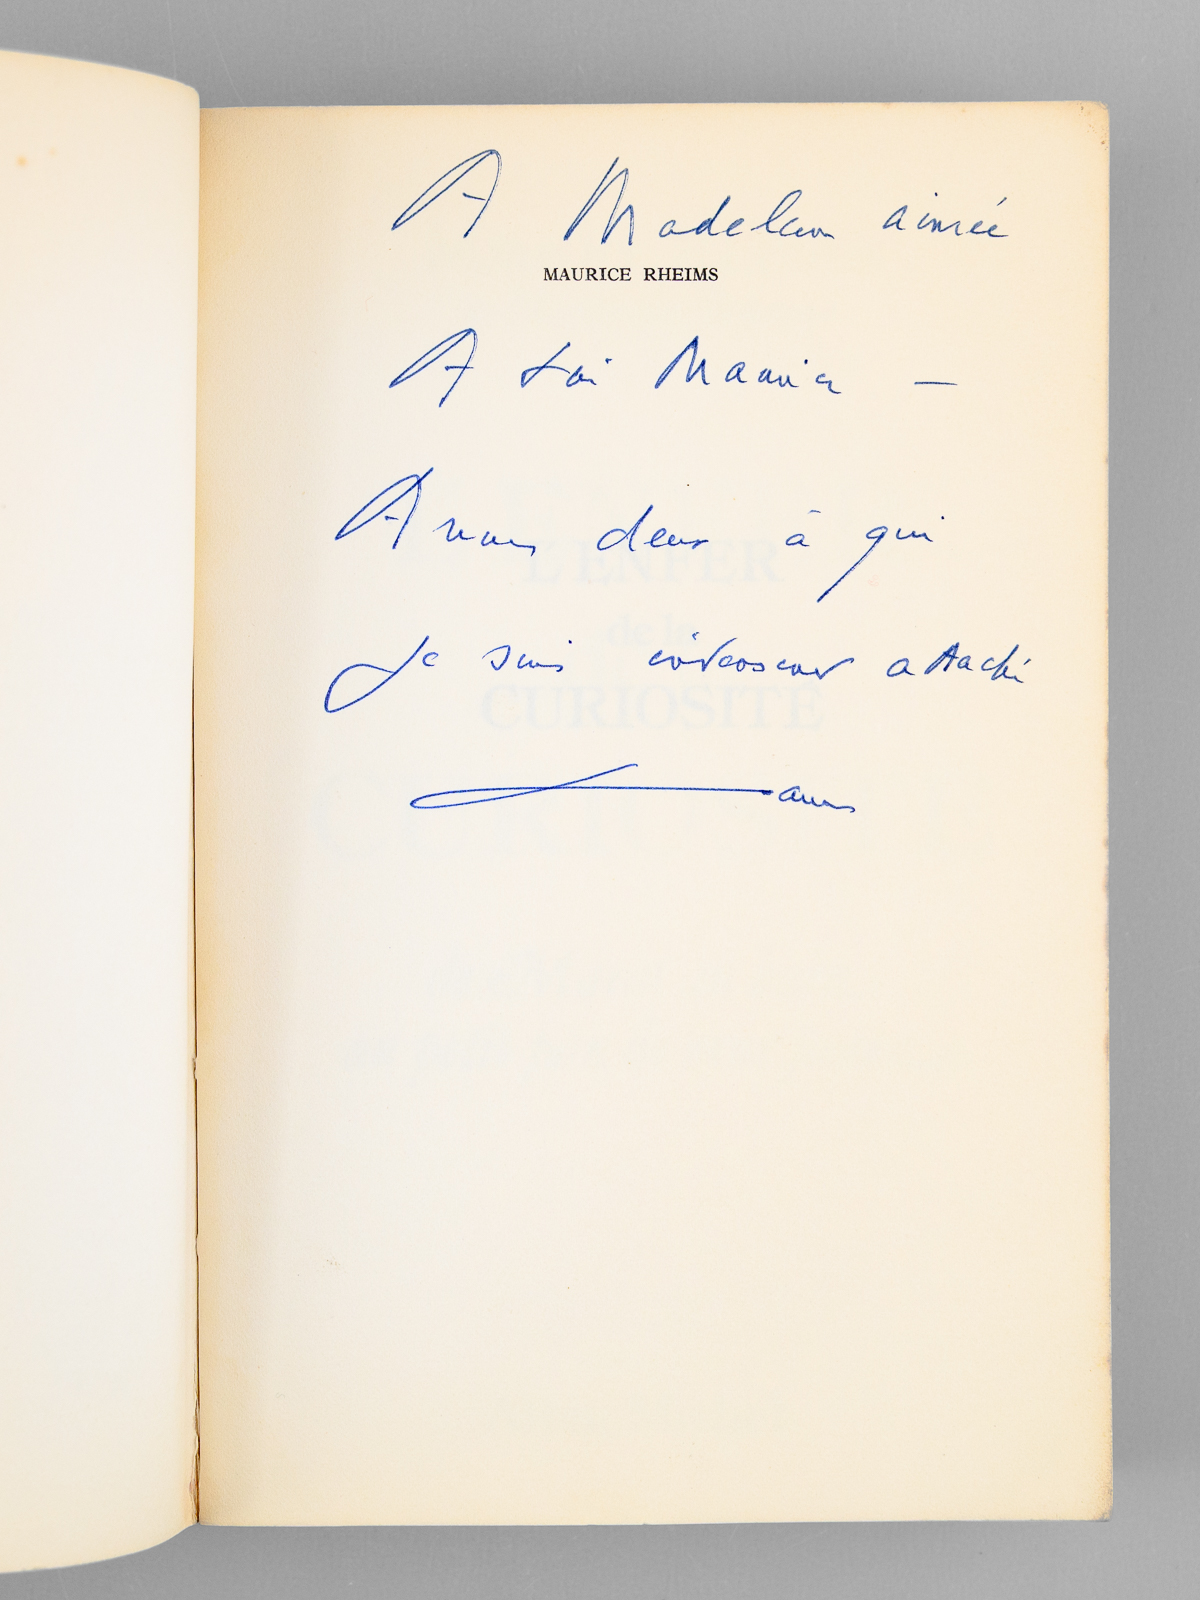 A Madeleine aimée
MAURICE RHEIMS
A toi Maurice —
A vous deux à qui
Je suis attaché
L'ENFER
de la
CURIOSITÉ